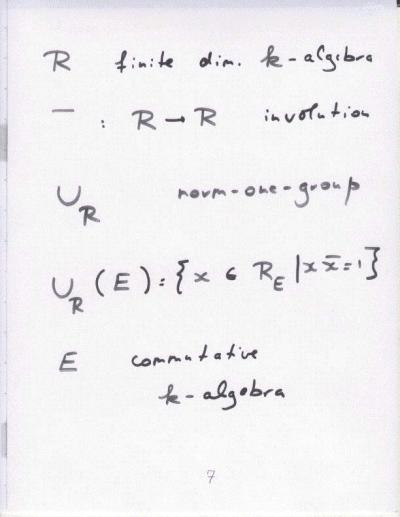 R finite dim. k-algebra
‾ : R → R involution
U_R norm-one-group
U_R (E) := {x ∈ R_E | x x̄ = 1}
E commutative
k-algebra
7